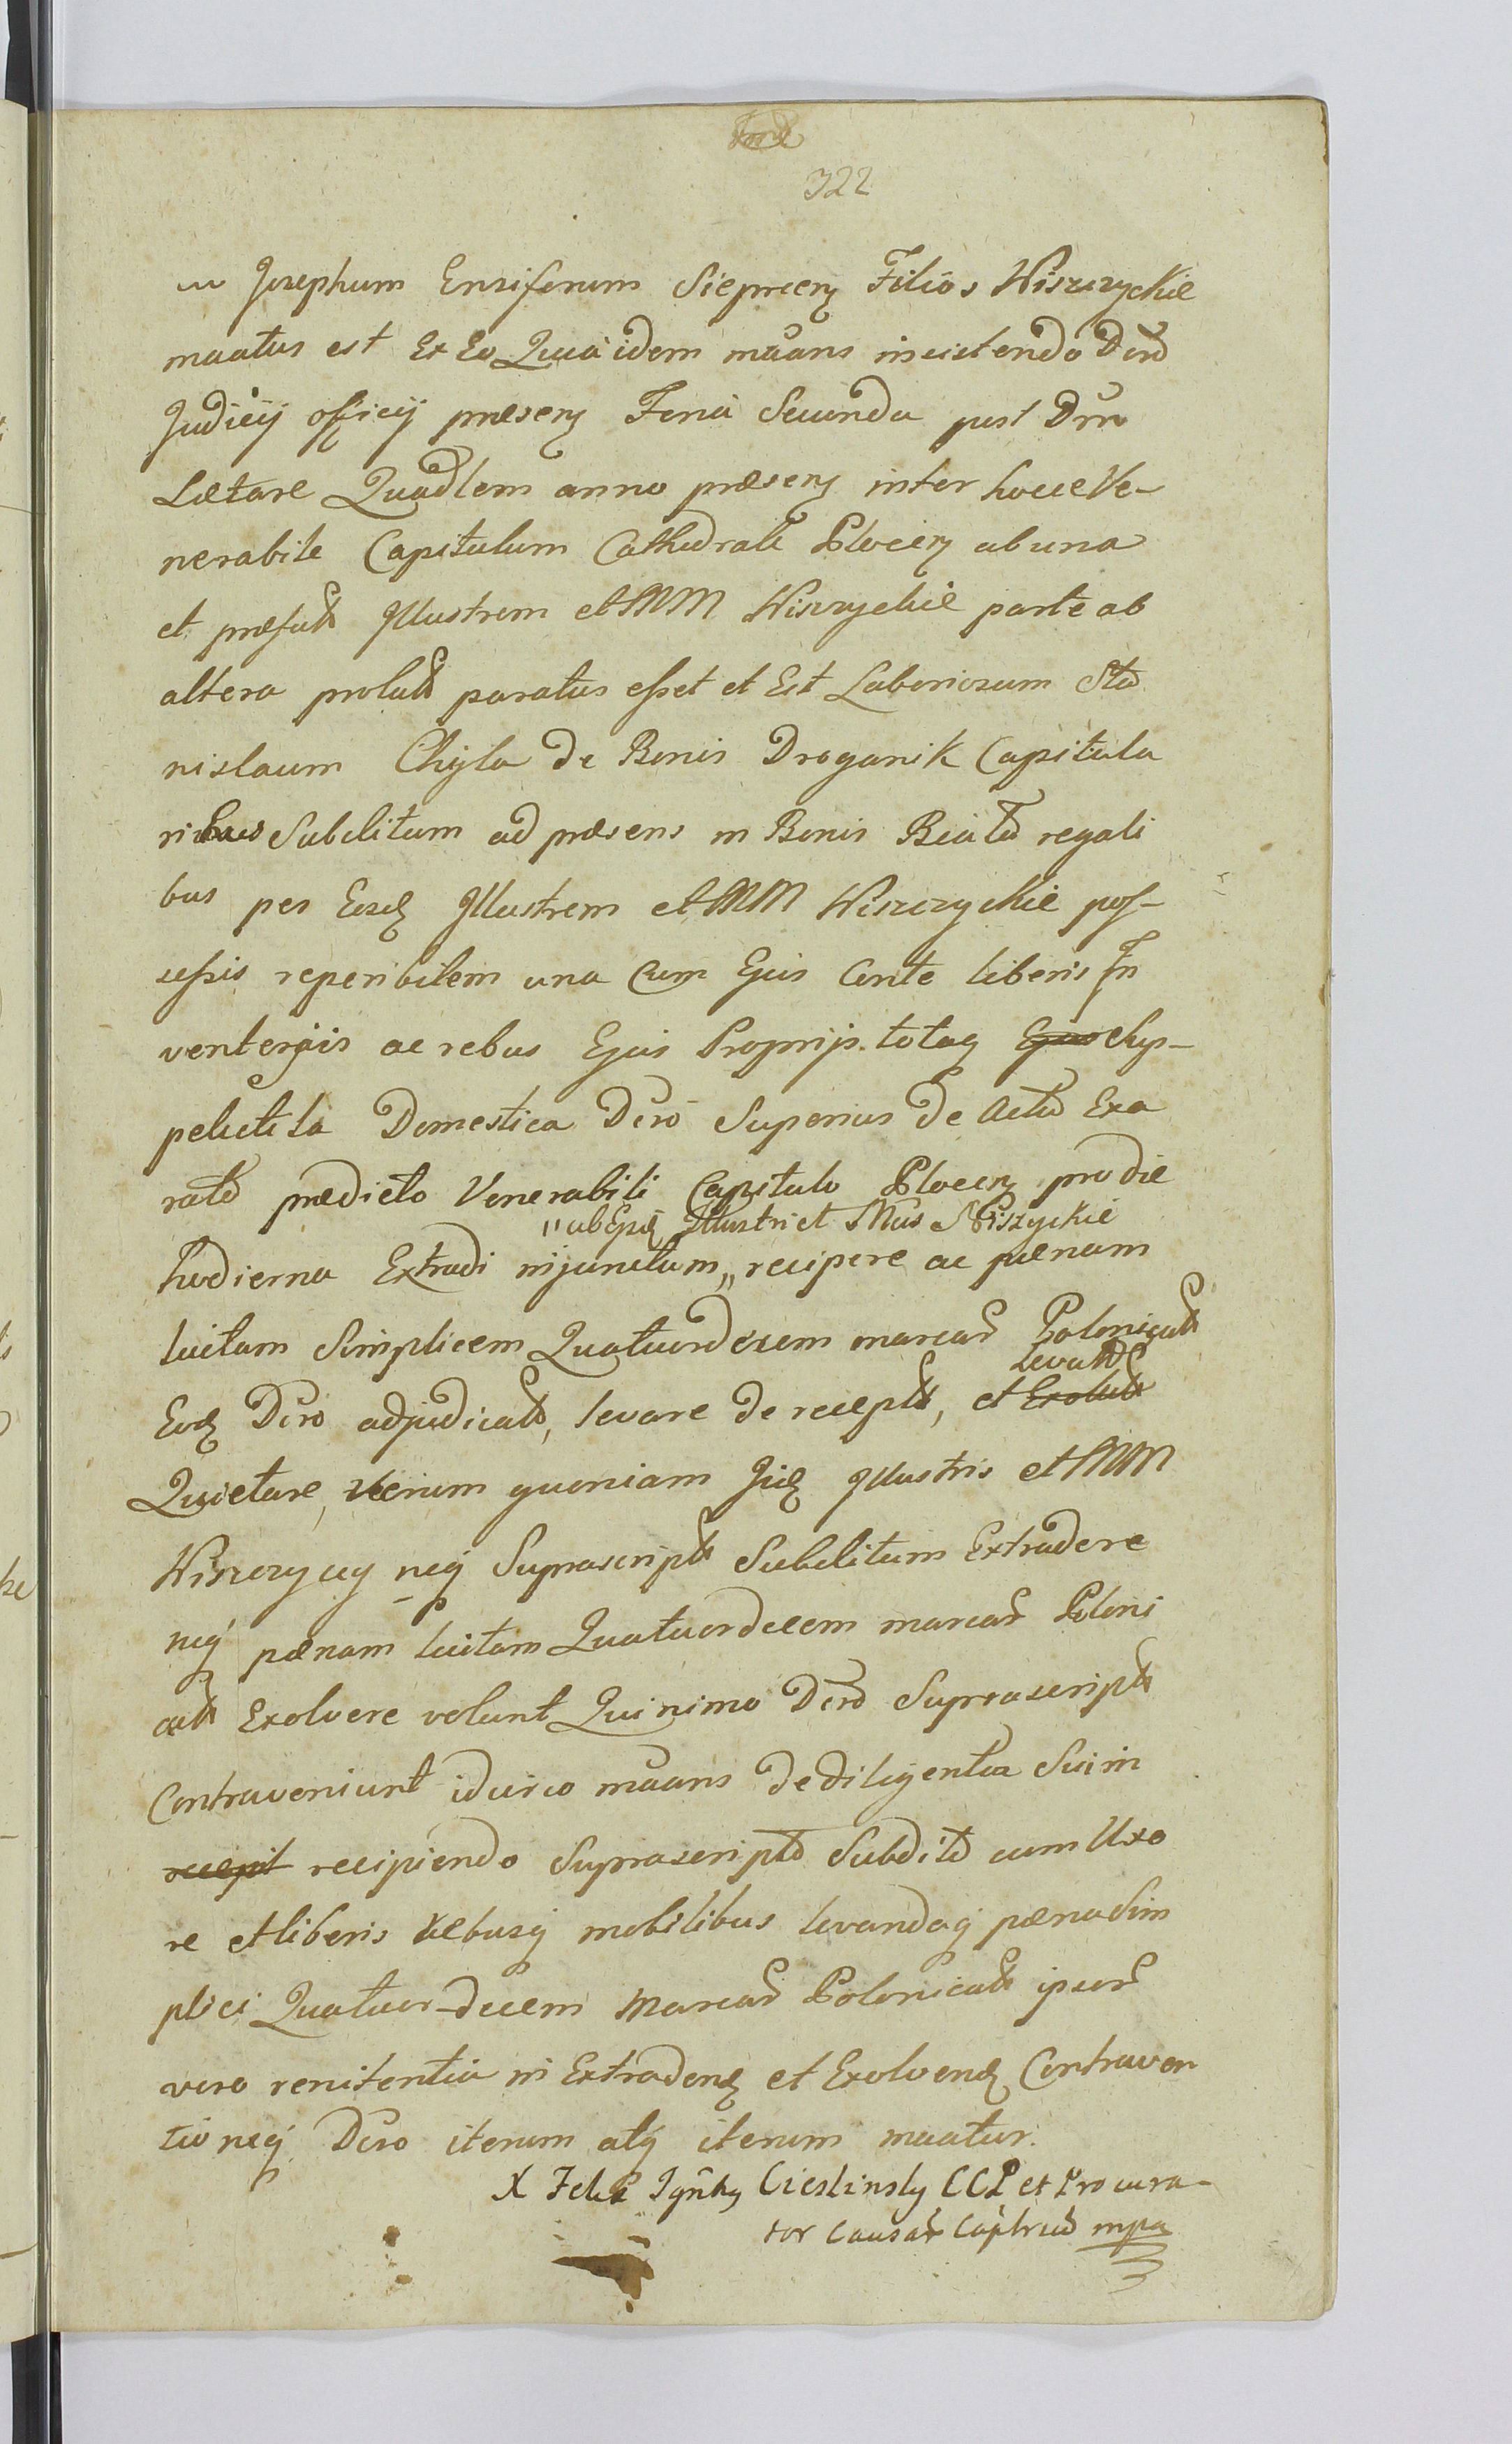 322
Josephum Ensiferum Sieprcen Filios Wiszczyckie
maatus est Ex Eo Quia idem maans insistendo Dcro
Judicij officij praesen Feria Secunda post Dnm
Laetare Quadlem anno praesen inter hocce Ve-
nerabile Capitulum Cathedrale Plocen ab una
et praefat Illustrem et MM Wiszczyckie parte ab
altera prolat paratus esset et Est Laboriosum Sta
nislaum Chyla de Bonis Droganik Capitula
ribus Subditum ad praesens in Bonis regali
bus per Eosd Illustrem et MM Wiszczyckie pos-
sessis reperibilem una Cum Ejus Conte liberis In
ventarjis ac rebus Ejus Proprijs totaq
pelectila Domestica Dcro Superius de Actu Exa
rato praedicto Venerabili Capitulo Plocen pro die
"ab Ipsis Illustri et MMis Wiszyckie
hodierna Extradi injunctum " recipere ac paenam
luitam Simplicem Quatuordecem marcar Polonicat
levat
Eod Dcro adjudicat, levare de recept, et Exolut
Quietare, Verum quoniam Jid Illustris et MM
Wiszczyccy neq Suprascript Subditum Extradere
neq paenam luitam Quatuordecem marcar Poloni
cat Exolvere volunt Quinimo Dcro Suprascript
Contraveniunt idcirco maans de diligentia Sui in
recepit recipiendo Suprascripto Subdito cum Uxo
re et liberis rebusq mobilibus levandaq paena Sim
plici Quatuor-decem Marcar Polonicat ipsor
vero renitentia in Extradend et Exolvend Contraven
tioneq Dcro iterum atq iterum maatur.
X Felix Ignacy Cieslinsky CCP et Procura-
tor Causar Capitrum mpa